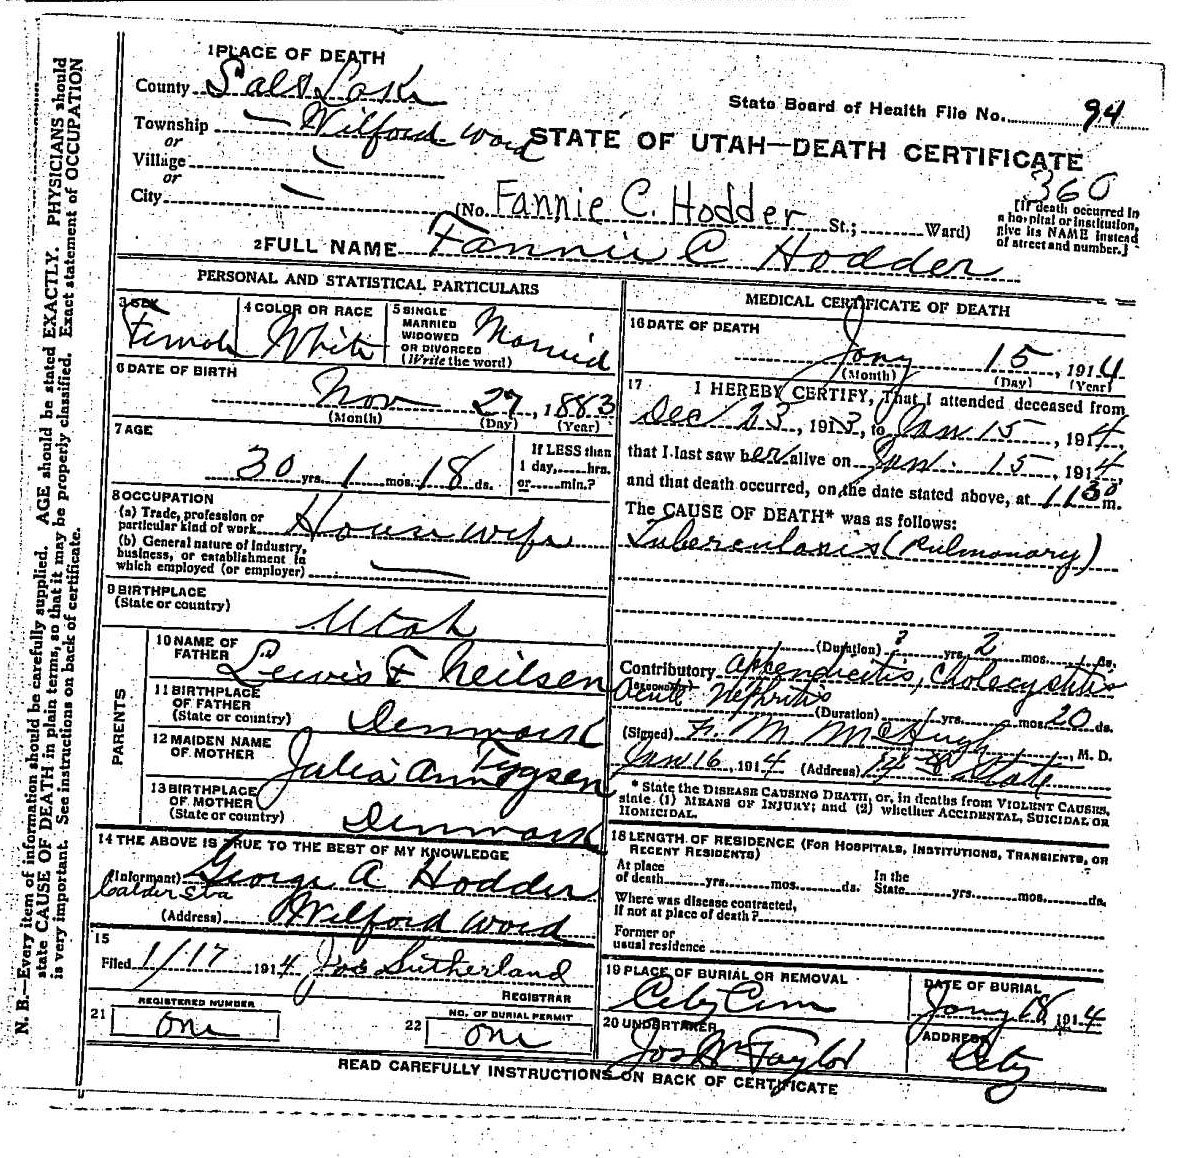 1 PLACE OF DEATH
County Salt Lake
State Board of Health File No. 94
Township Wilford Ward
or
Village
or
City
STATE OF UTAH—DEATH CERTIFICATE
360
(No. Fannie C. Hodder St.; Ward)
[If death occurred in
a hospital or institution,
give its NAME instead
of street and number.]
2 FULL NAME Fannie C Hodder
PERSONAL AND STATISTICAL PARTICULARS
3 SEX
Female
4 COLOR OR RACE
White
5 SINGLE
MARRIED
WIDOWED
OR DIVORCED
(Write the word)
Married
6 DATE OF BIRTH
Nov 27, 1883
(Month) (Day) (Year)
7 AGE
30 yrs. 1 mos. 18 ds.
If LESS than
1 day, hrs.
or min.?
8 OCCUPATION
(a) Trade, profession or
particular kind of work House wife
(b) General nature of industry,
business, or establishment in
which employed (or employer)
9 BIRTHPLACE
(State or country)
Utah
PARENTS
10 NAME OF
FATHER
Lewis F Neilsen
11 BIRTHPLACE
OF FATHER
(State or country)
Denmark
12 MAIDEN NAME
OF MOTHER
Julia Ann Tygsen
13 BIRTHPLACE
OF MOTHER
(State or country)
Denmark
14 THE ABOVE IS TRUE TO THE BEST OF MY KNOWLEDGE
(Informant) George A Hodder
Calder Sta
(Address) Wilford Ward
15
Filed 1/17 1914 Jos Sutherland
REGISTRAR
REGISTERED NUMBER
21 One
NO. OF BURIAL PERMIT
22 One
MEDICAL CERTIFICATE OF DEATH
16 DATE OF DEATH
Jany 15, 1914
(Month) (Day) (Year)
17 I HEREBY CERTIFY, That I attended deceased from
Dec 23, 1913, to Jan 15, 1914,
that I last saw her alive on Jan. 15, 1914,
and that death occurred, on the date stated above, at 11 30 m.
The CAUSE OF DEATH* was as follows:
Tuberculosis (Pulmonary)
(Duration) ? yrs. 2 mos. ds.
Contributory Appendicitis, Cholecystitis
(SECONDARY)
Acute Nephritis
(Duration) yrs. mos. 20 ds.
(Signed) F. M McHugh, M. D.
Jan 16, 1914 (Address) State
* State the DISEASE CAUSING DEATH, or, in deaths from VIOLENT CAUSES,
state (1) MEANS OF INJURY; and (2) whether ACCIDENTAL, SUICIDAL OR
HOMICIDAL.
18 LENGTH OF RESIDENCE (FOR HOSPITALS, INSTITUTIONS, TRANSIENTS, OR
RECENT RESIDENTS)
At place
of death yrs. mos. ds.
In the
State yrs. mos. ds.
Where was disease contracted,
if not at place of death?
Former or
usual residence
19 PLACE OF BURIAL OR REMOVAL
City Cem
DATE OF BURIAL
Jany 18, 1914
20 UNDERTAKER
Jos Wm Taylor
ADDRESS
City
READ CAREFULLY INSTRUCTIONS ON BACK OF CERTIFICATE
N. B.—Every item of information should be carefully supplied. AGE should be stated EXACTLY. PHYSICIANS should
state CAUSE OF DEATH in plain terms, so that it may be properly classified. Exact statement of OCCUPATION
is very important. See instructions on back of certificate.